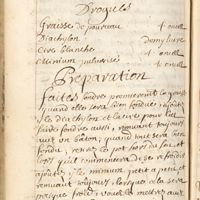 Drogues
Graisse de pourceau 1 onces
Diachylon Demy livre
Cire blanche 1 onces
Minium pulverisé 1 onces
Preparation
faites fondre premierement la graisse
quand elle sera bien fondue, ajoutes
le Diachylon et la cire pour les
faire fondre aussi, remuant toujours
avec un baton, quand tout sera bien
fondu, retirez ce pot hors du feu et
lors qu'il commencera de se refroidir
ajoutes, le minium petit a petit et
remuant toujours jusques a ce que